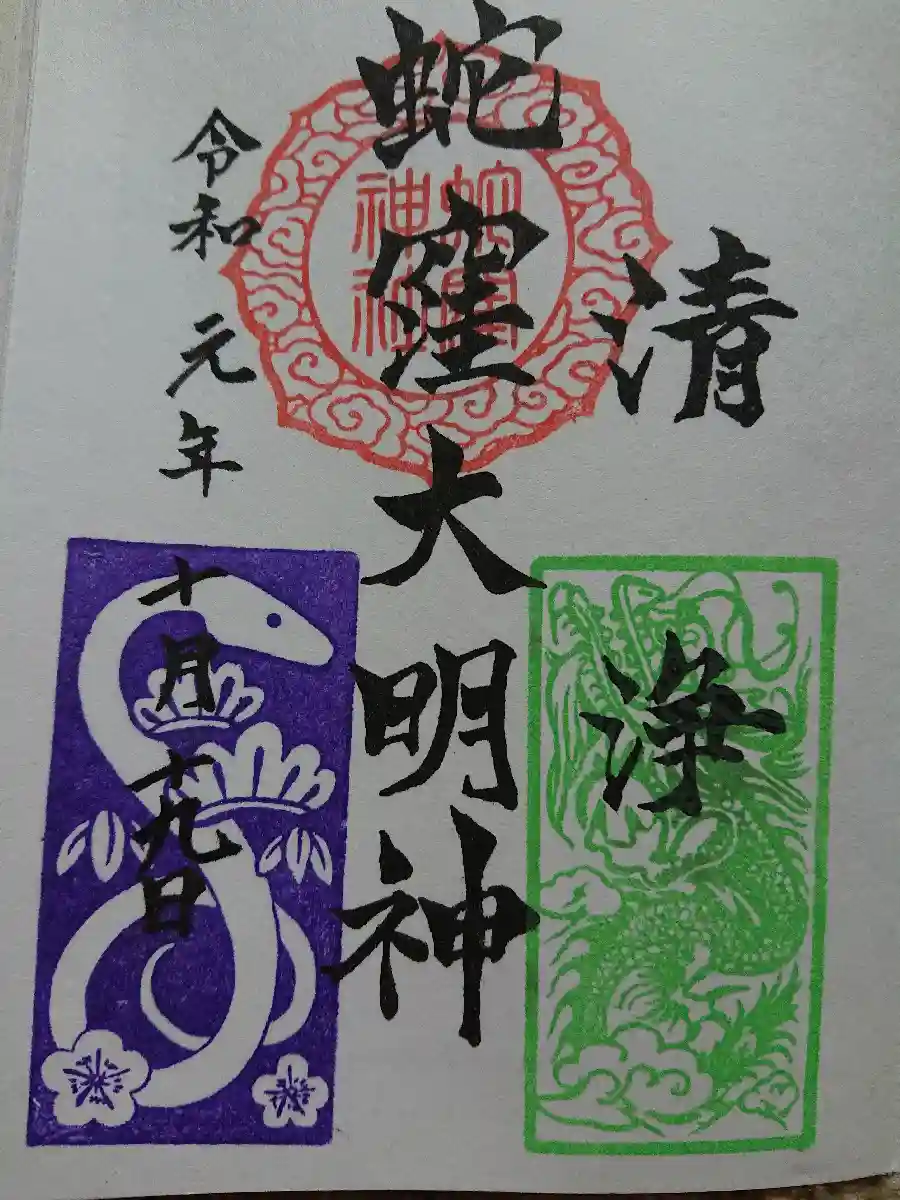 清浄
蛇窪大明神
蛇窪
神社
令和元年十月十九日